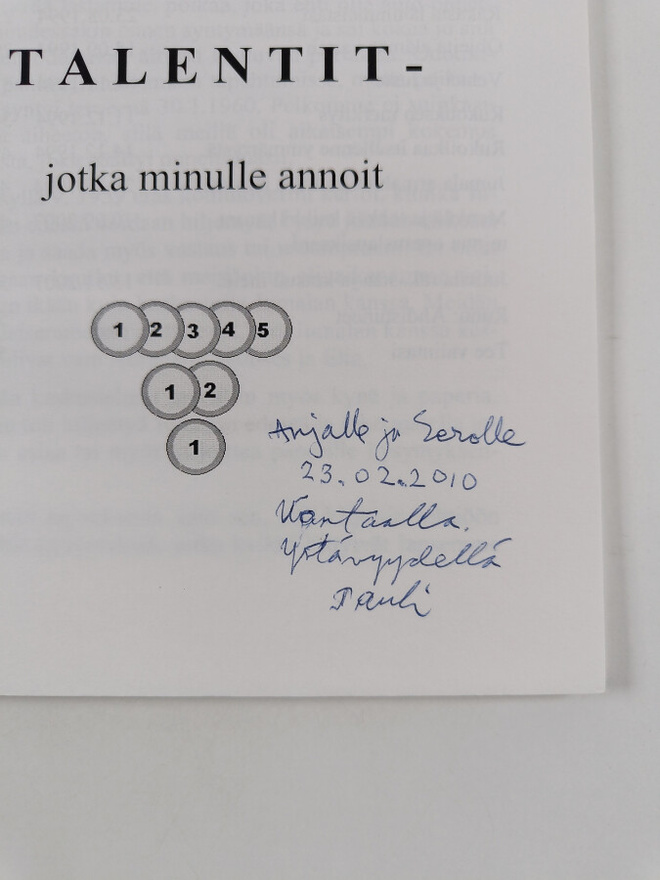 TALENTIT-
jotka minulle annoit
1 2 3 4 5
1 2
1
Anjalle ja Eerolle
23.02.2010
Vantaalla.
Ystävyydellä
Pauli